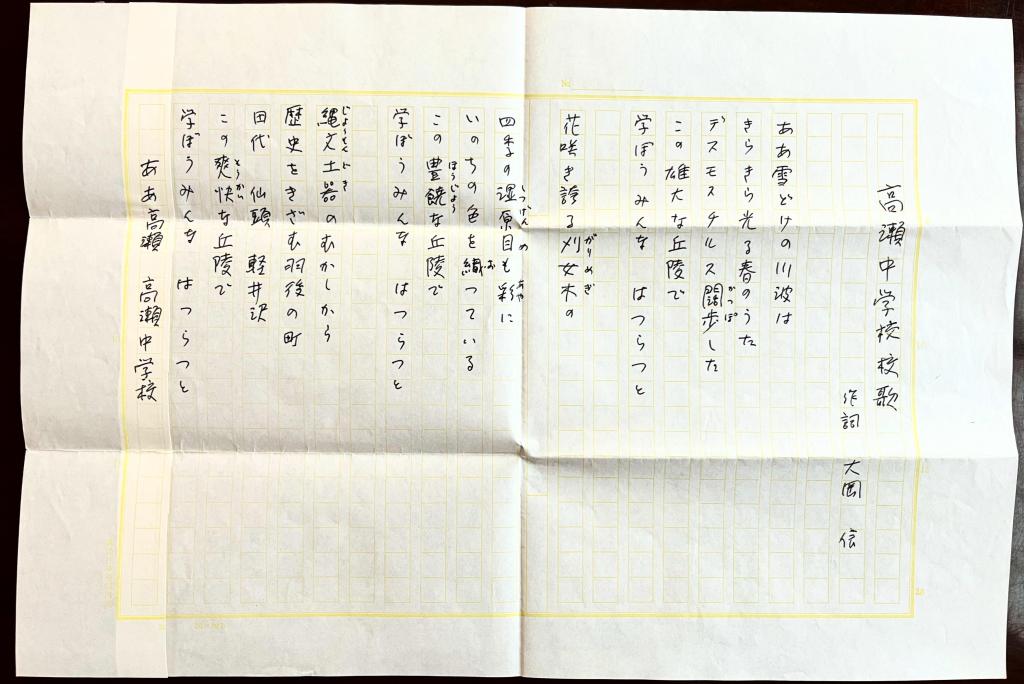 No.
高瀬中学校校歌
作詞 大岡 信
ああ雪どけの川波は
きらきら光る春のうた
デスモスチルス闊歩した
かっぽ
この雄大な丘陵で
学ぼうみんな はつらつと
花咲き誇る刈女木の
がりめぎ
四季の湿原目も彩に
しつげん め あや
いのちの色を織つている
お
この豊饒な丘陵で
ほうじょう
学ぼうみんな はつらつと
縄文土器のむかしから
じょうもんどき
歴史をきざむ羽後の町
田代 仙頭 軽井沢
この爽快な丘陵で
そうかい
学ぼうみんな はつらつと
ああ高瀬 高瀬中学校